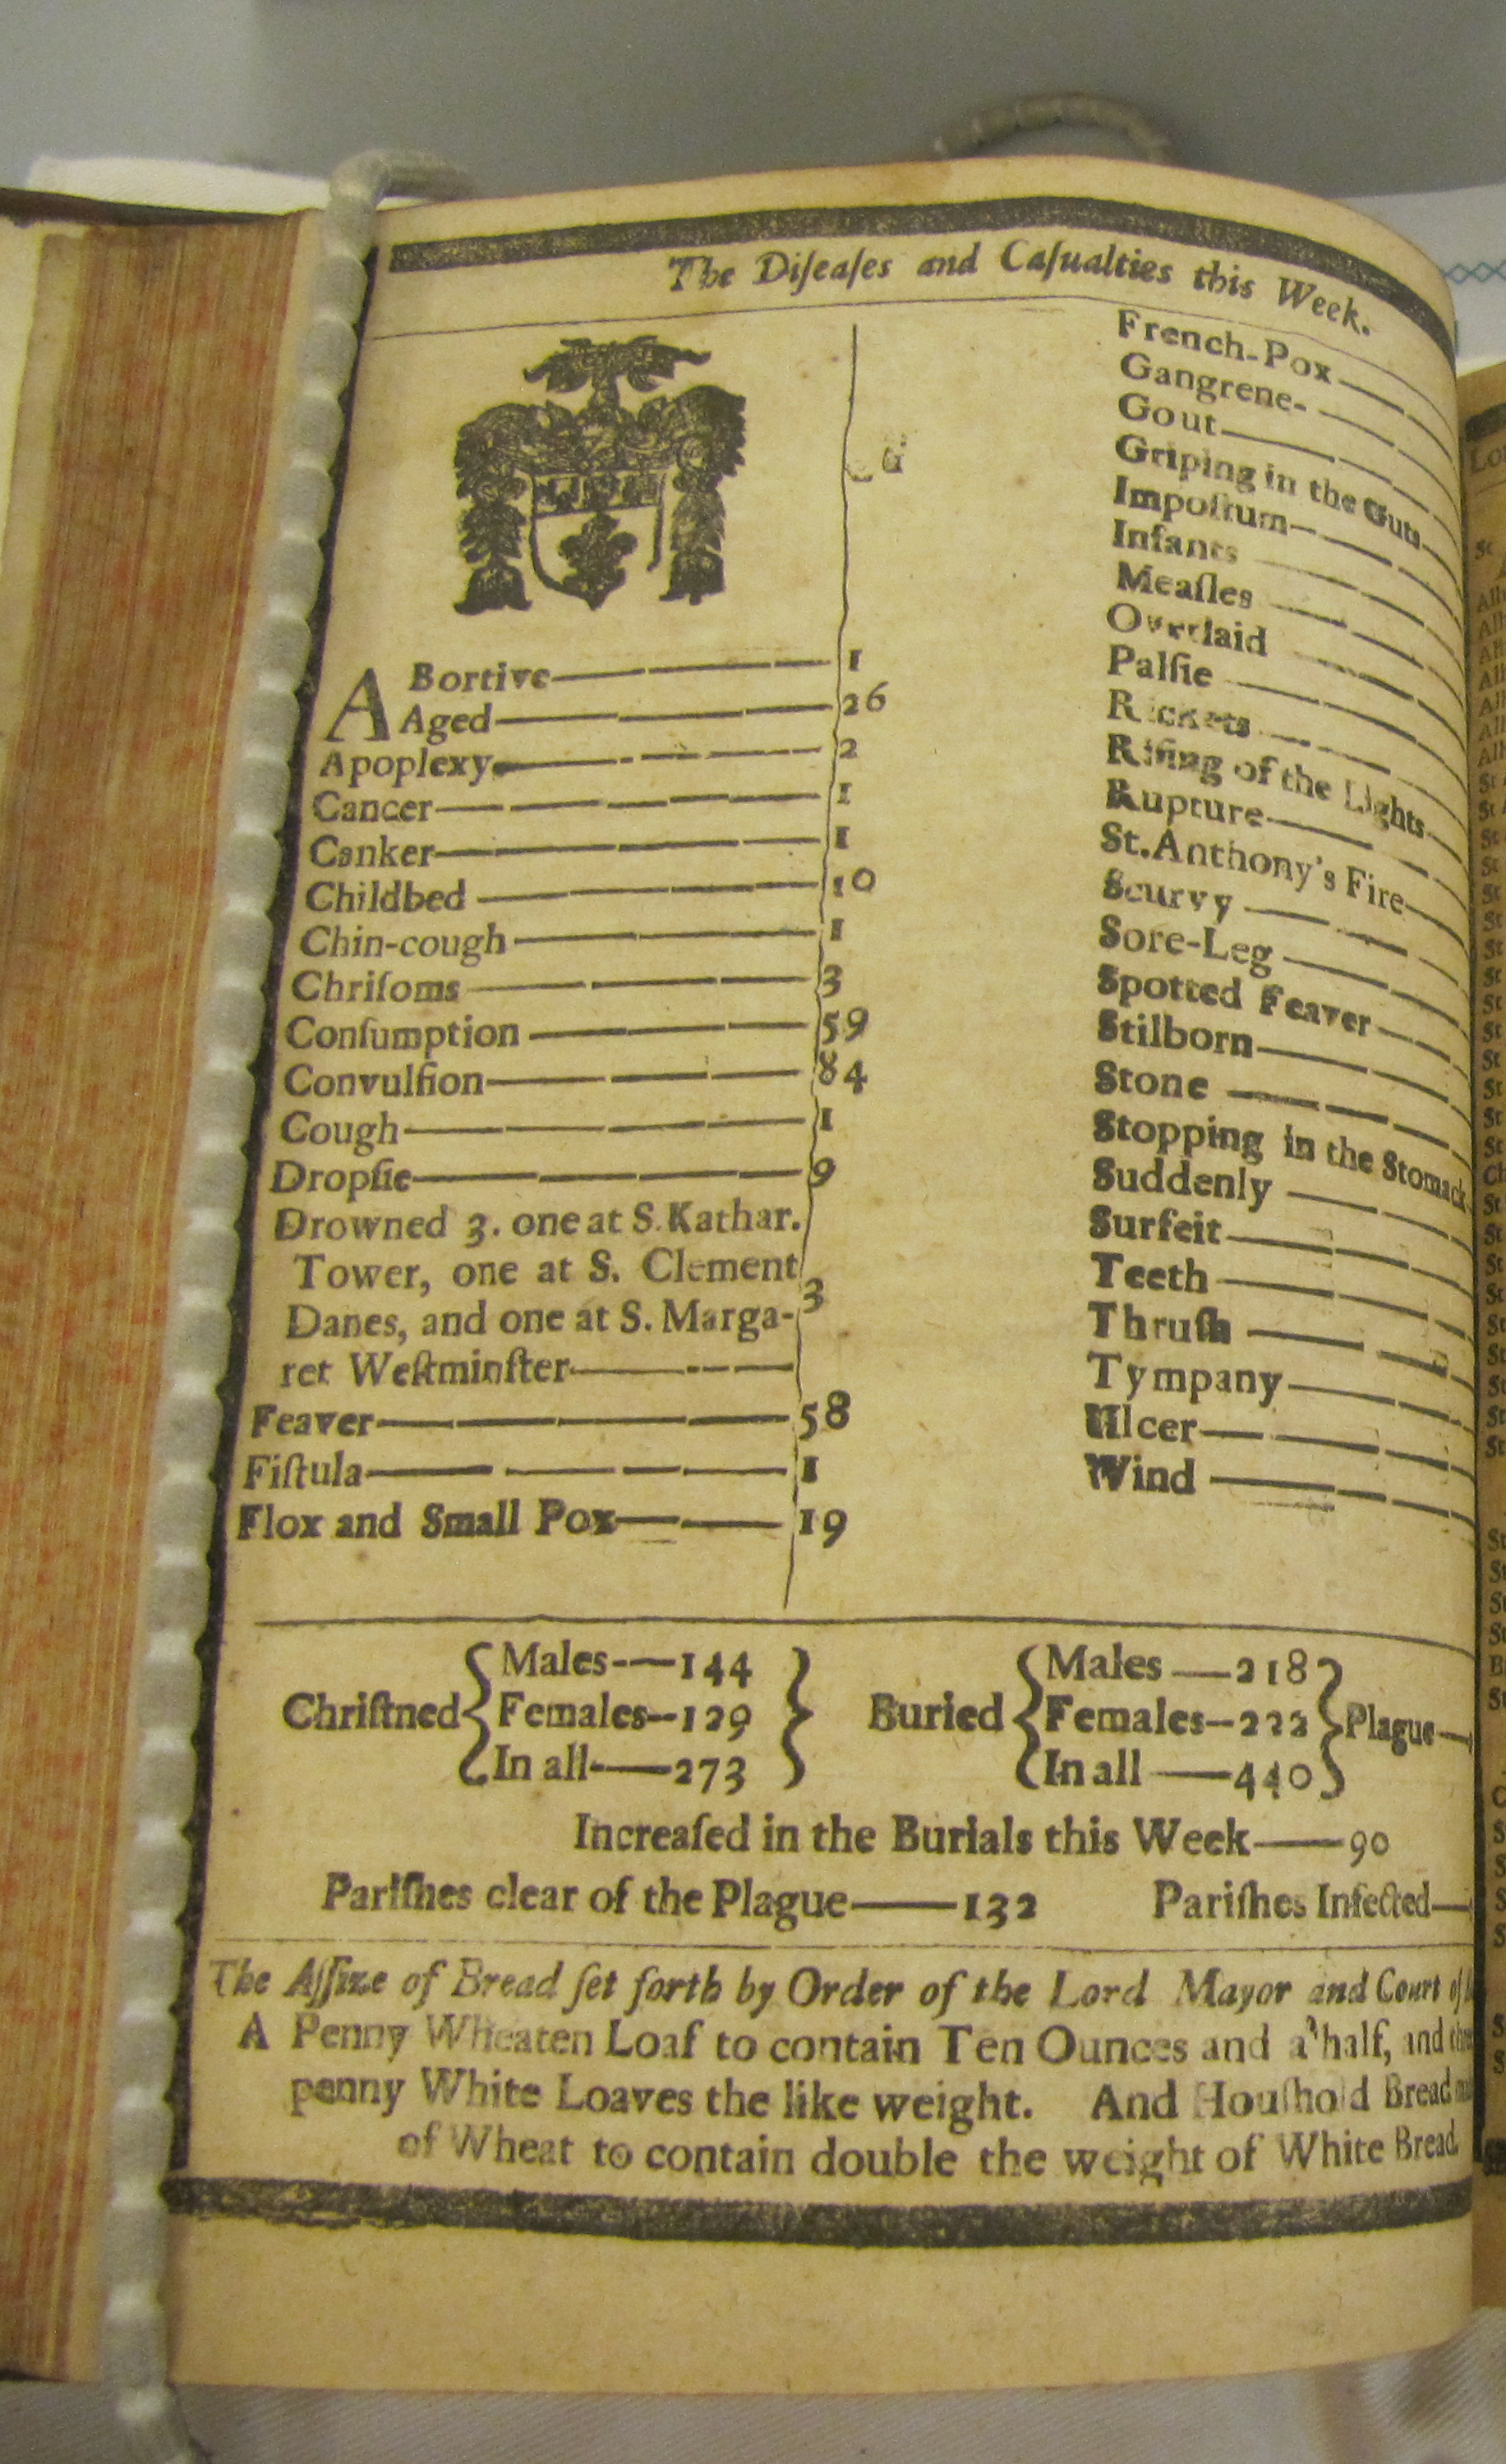 The Diſeaſes and Caſualties this Week.
ABortive 1
Aged 26
Apoplexy 2
Cancer 1
Canker 1
Childbed 10
Chin-cough 1
Chriſoms 3
Conſumption 59
Convulſion 84
Cough 1
Dropſie 9
Drowned 3. one at S. Kathar.
Tower, one at S. Clement
Danes, and one at S. Marga-
ret Weſtminſter 3
Feaver 58
Fiſtula 1
Flox and Small Pox 19
French-Pox
Gangrene
Gout
Griping in the Guts
Impoſtum
Infants
Meaſles
Overlaid
Palſie
Rickets
Riſing of the Lights
Rupture
St. Anthony's Fire
Scurvy
Sore-Leg
Spotted Feaver
Stilborn
Stone
Stopping in the Stomack
Suddenly
Surfeit
Teeth
Thruſh
Tympany
Ulcer
Wind
Chriſtned { Males 144 Females 129 In all 273 }
Buried { Males 218 Females 222 In all 440 } Plague
Increaſed in the Burials this Week 90
Pariſhes clear of the Plague 132 Pariſhes Infected
The Aſſize of Bread ſet forth by Order of the Lord Mayor and Court of
A Penny Wheaten Loaf to contain Ten Ounces and a half, and
penny White Loaves the like weight. And Houſhold Bread
of Wheat to contain double the weight of White Bread.